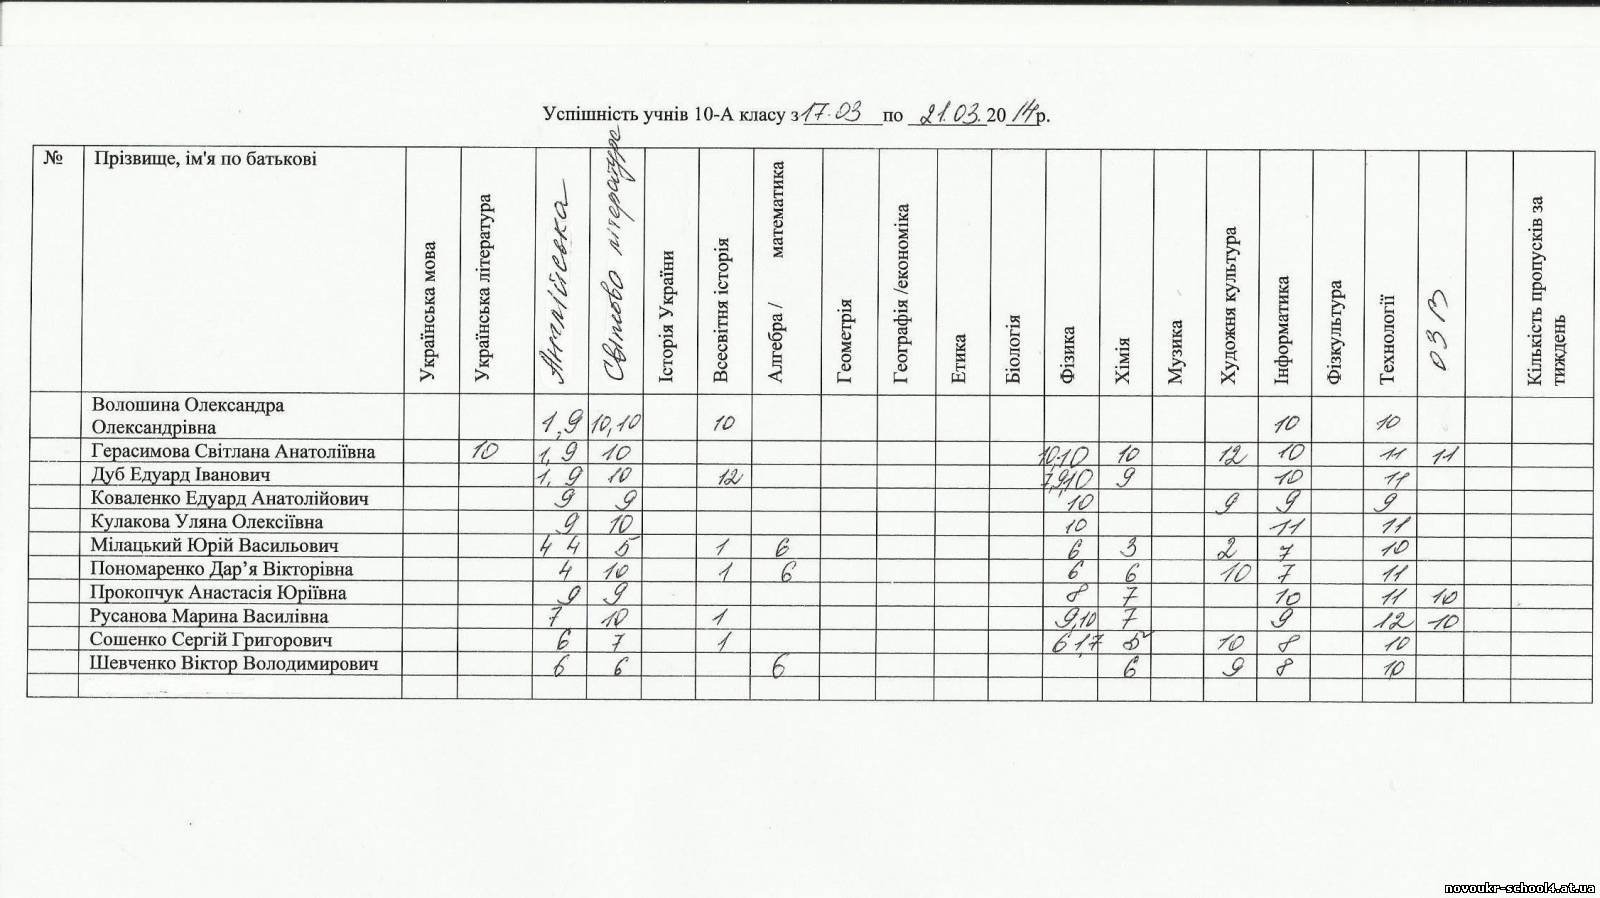 Успішність учнів 10-А класу з 17.03 по 21.03.2014р.
№ Прізвище, ім'я по батькові Українська мова Українська література Англійська Світова література Історія України Всесвітня історія Алгебра / математика Геометрія Географія /економіка Етика Біологія Фізика Хімія Музика Художня культура Інформатика Фізкультура Технології ОЗВ Кількість пропусків за тиждень
Волошина Олександра
Олександрівна 1,9 10,10 10 10 10
Герасимова Світлана Анатоліївна 10 1,9 10 10,10 10 12 10 11 11
Дуб Едуард Іванович 1,9 10 12 7,9,10 9 10 11
Коваленко Едуард Анатолійович 9 9 10 9 9 9
Кулакова Уляна Олексіївна 9 10 10 11 11
Мілацький Юрій Васильович 4 4 5 1 6 6 3 2 7 10
Пономаренко Дар’я Вікторівна 4 10 1 6 6 6 10 7 11
Прокопчук Анастасія Юріївна 9 9 8 7 10 11 10
Русанова Марина Василівна 7 10 1 9,10 7 9 12 10
Сошенко Сергій Григорович 6 7 1 6 1,7 5 10 8 10
Шевченко Віктор Володимирович 6 6 6 6 9 8 10
novoukr-school4.at.ua